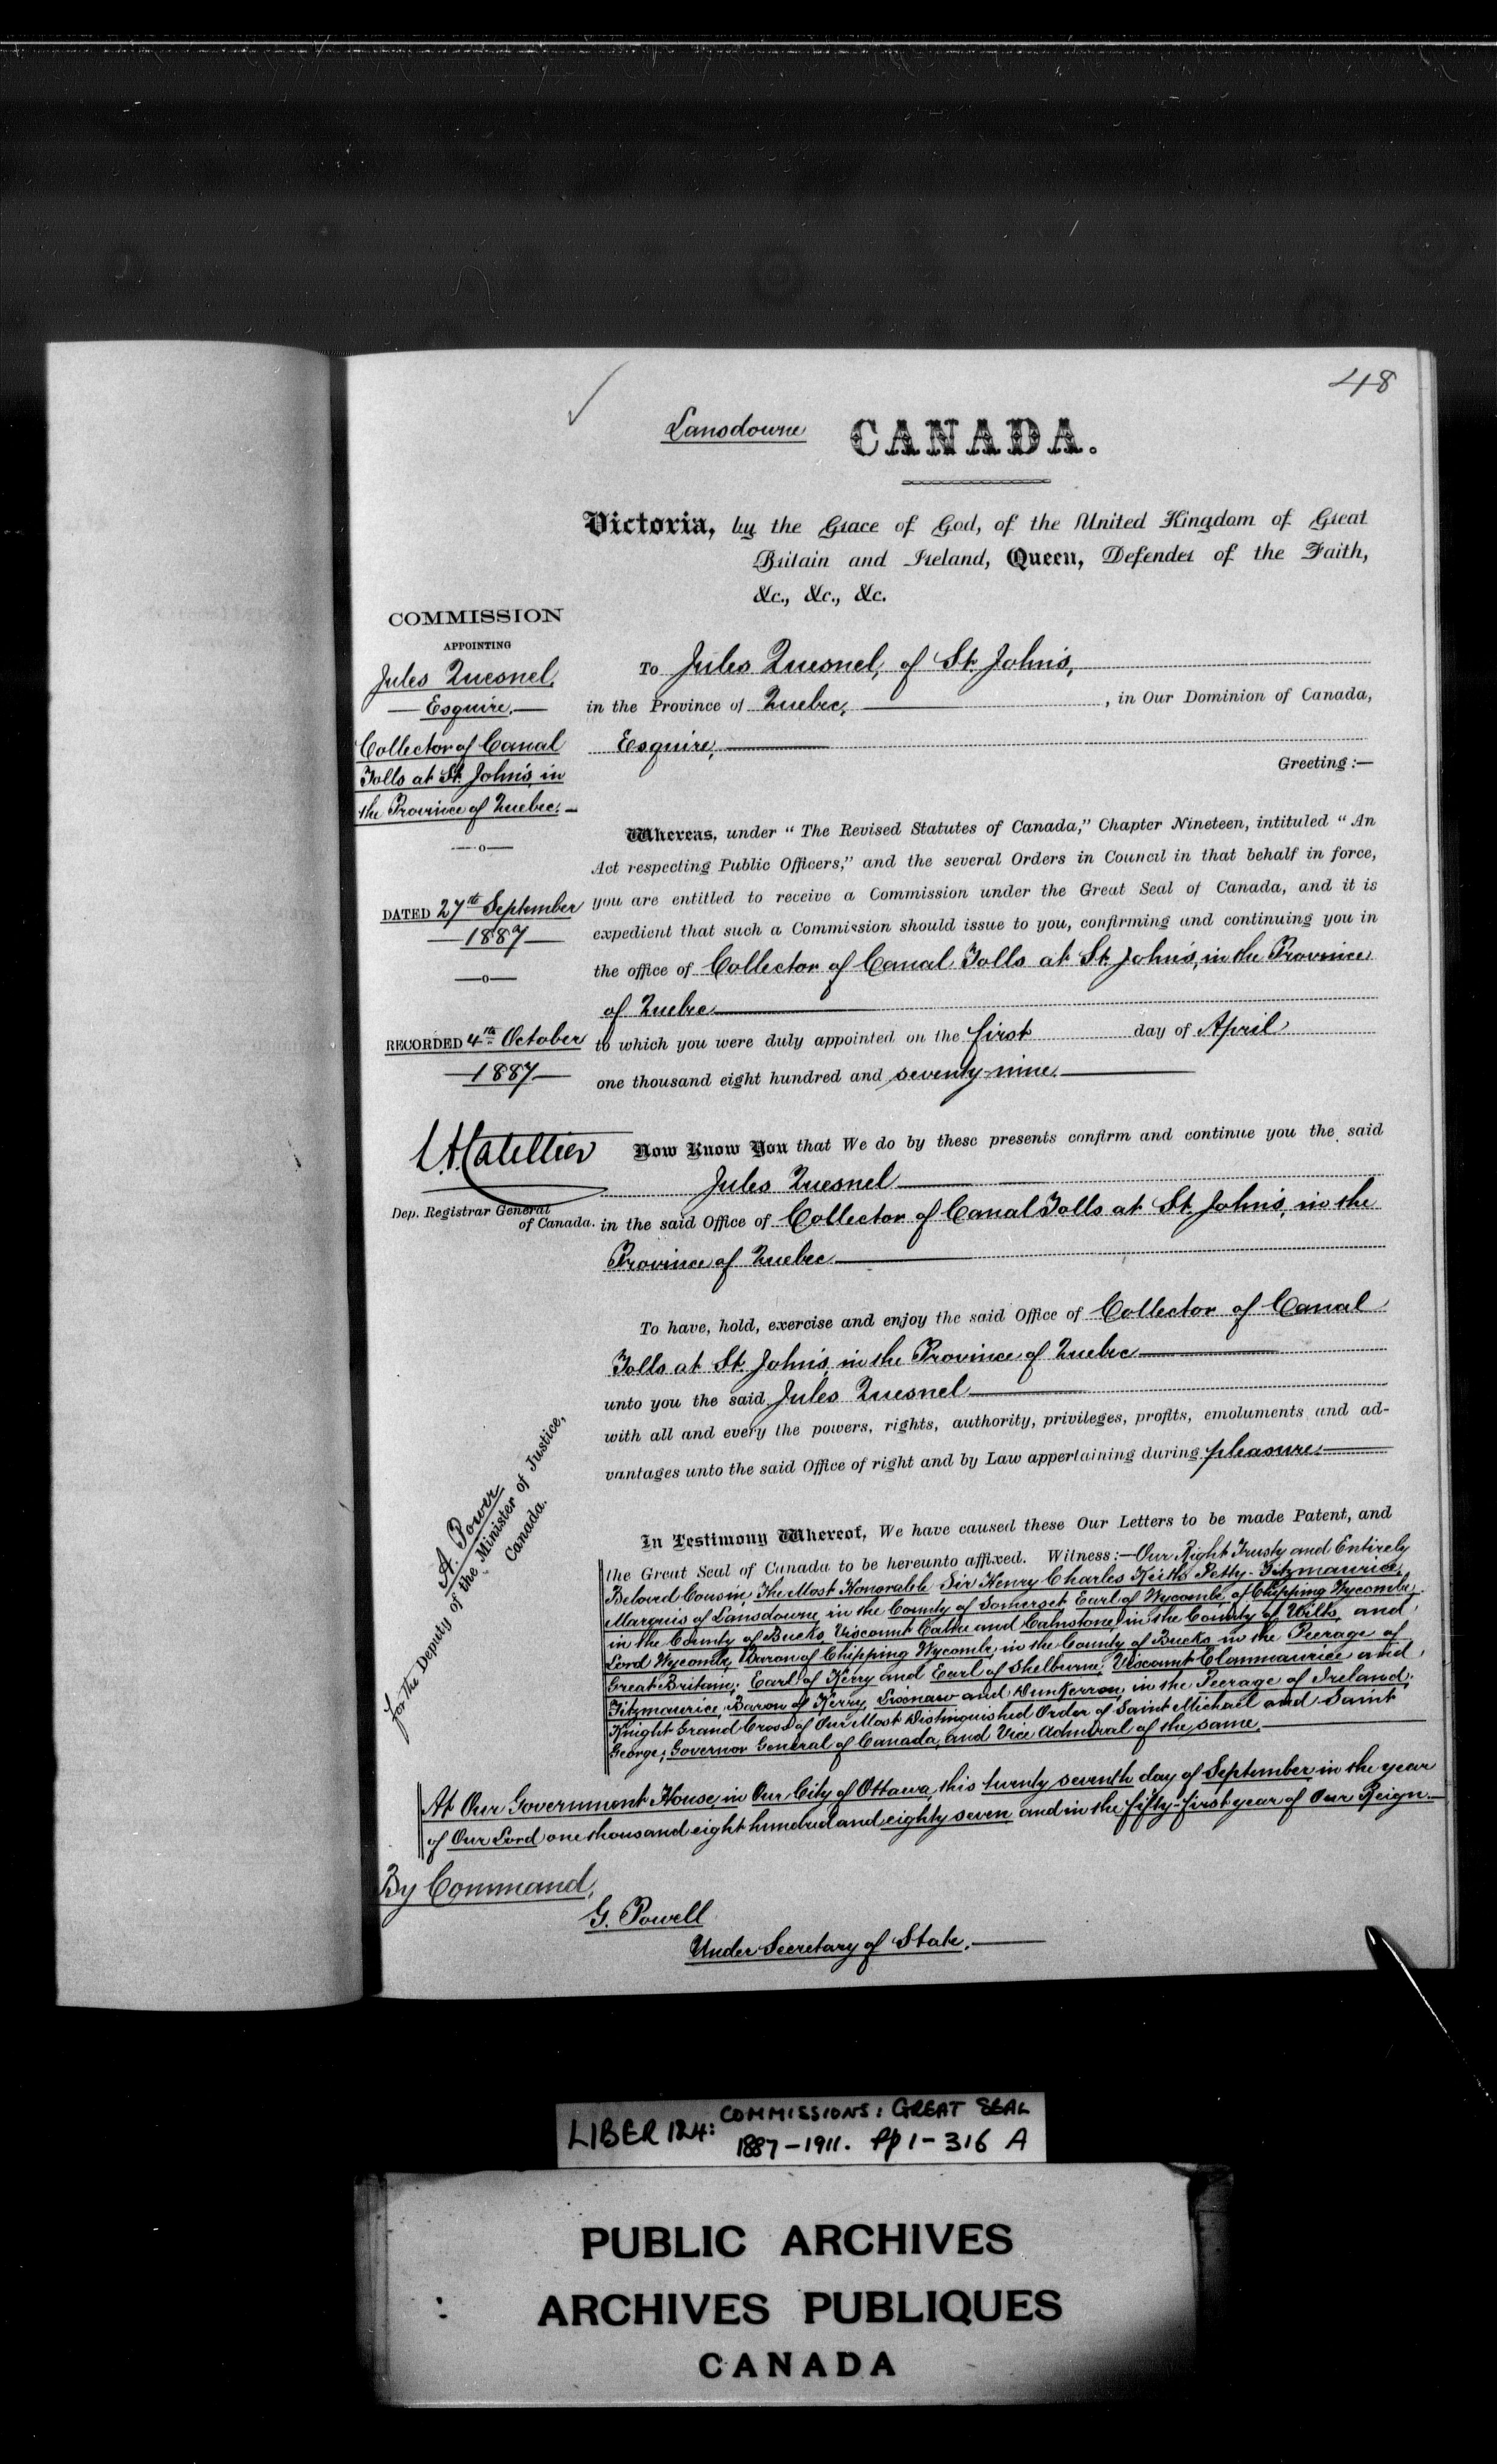 48
Lansdowne CANADA.
Victoria, by the Grace of God, of the United Kingdom of Great
Britain and Ireland, Queen, Defender of the Faith,
&c., &c., &c.
COMMISSION
APPOINTING
Jules Quesnel,
Esquire,
Collector of Canal
Tolls at St. John's, in
the Province of Quebec.
DATED 27th September
1887
RECORDED 4th October
1887
L.A. Catellier
Dep. Registrar General
of Canada.
To Jules Quesnel, of St. John's,
in the Province of Quebec, , in Our Dominion of Canada,
Esquire,
Greeting :—
Whereas, under “ The Revised Statutes of Canada,” Chapter Nineteen, intituled “ An
Act respecting Public Officers,” and the several Orders in Council in that behalf in force,
you are entitled to receive a Commission under the Great Seal of Canada, and it is
expedient that such a Commission should issue to you, confirming and continuing you in
the office of Collector of Canal Tolls at St. John's, in the Province
of Quebec
to which you were duly appointed on the first day of April
one thousand eight hundred and seventy-nine.
Now Know You that We do by these presents confirm and continue you the said
Jules Quesnel
in the said Office of Collector of Canal Tolls at St. John's, in the
Province of Quebec
To have, hold, exercise and enjoy the said Office of Collector of Canal
Tolls at St. John's, in the Province of Quebec
unto you the said Jules Quesnel
with all and every the powers, rights, authority, privileges, profits, emoluments and ad-
vantages unto the said Office of right and by Law appertaining during pleasure.
A. Power
for the Deputy of the Minister of Justice,
Canada.
In Testimony Whereof, We have caused these Our Letters to be made Patent, and
the Great Seal of Canada to be hereunto affixed. Witness :—Our Right Trusty and Entirely
Beloved Cousin, The Most Honorable Sir Henry Charles Keith Petty-Fitzmaurice,
Marquis of Lansdowne, in the County of Somerset, Earl of Wycombe, of Chipping Wycombe,
in the County of Bucks, Viscount Calne and Calnstone, in the County of Wilts, and
Lord Wycombe, Baron of Chipping Wycombe, in the County of Bucks, in the Peerage of
Great Britain; Earl of Kerry and Earl of Shelburne, Viscount Clanmaurice and
Fitzmaurice, Baron of Kerry, Lixnaw and Dunkerron, in the Peerage of Ireland;
Knight Grand Cross of Our Most Distinguished Order of Saint Michael and Saint
George; Governor General of Canada, and Vice Admiral of the same.
At Our Government House, in Our City of Ottawa, this twenty seventh day of September, in the year
of Our Lord one thousand eight hundred and eighty seven and in the fifty-first year of Our Reign.
By Command,
G. Powell
Under Secretary of State.
LIBER 124: COMMISSIONS: GREAT SEAL
1887-1911. Pp 1-316 A
PUBLIC ARCHIVES
ARCHIVES PUBLIQUES
CANADA